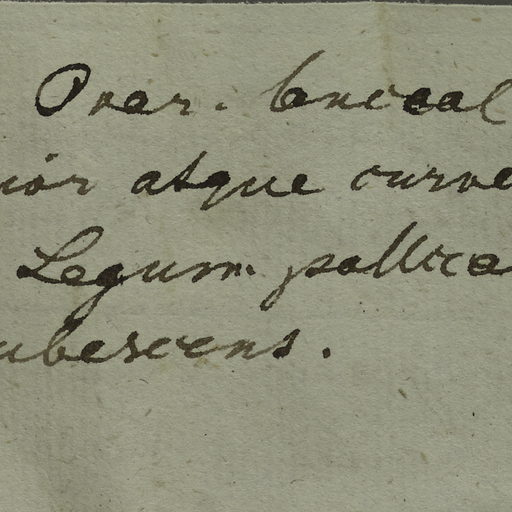 Ovar. lanceal
uior atque curve
Legum. pollica
ubescens.